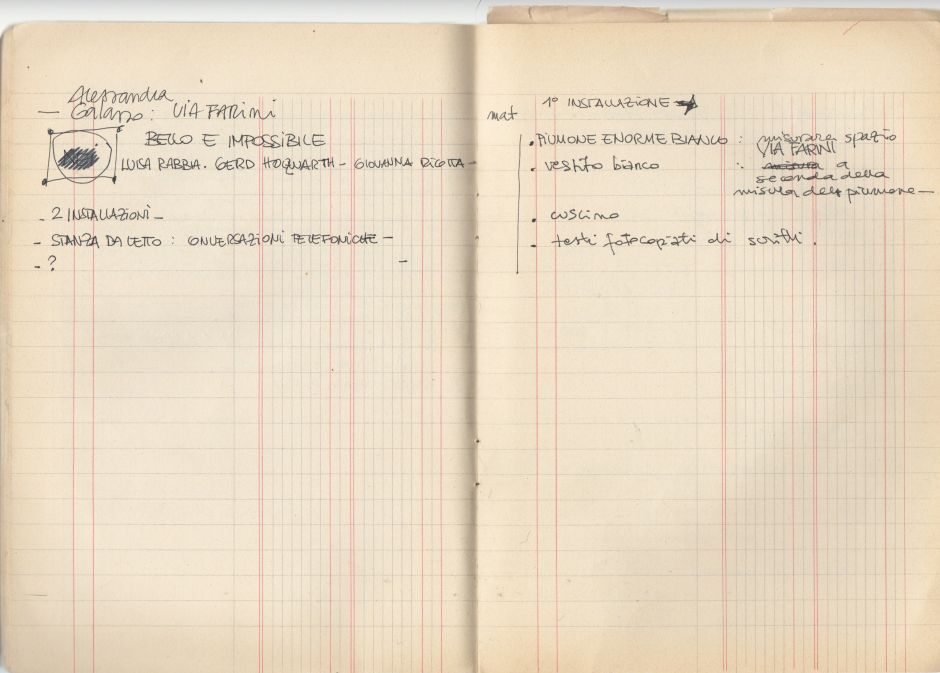 Alessandra
— Galasso : VIA FARINI
BELLO E IMPOSSIBILE
LUISA RABBIA. GERD HOLZWARTH – GIOVANNA DICOTTA –
- 2 INSTALLAZIONI –
- STANZA DA LETTO : CONVERSAZIONI TELEFONICHE –
- ?
–
1° INSTALLAZIONE →
mat
. PIUMONE ENORME BIANCO : misurare spazio
VIA FARINI
. vestito bianco : misura a
seconda della
misura del piumone –
. cuscino
. testi fotocopiati di scritti.